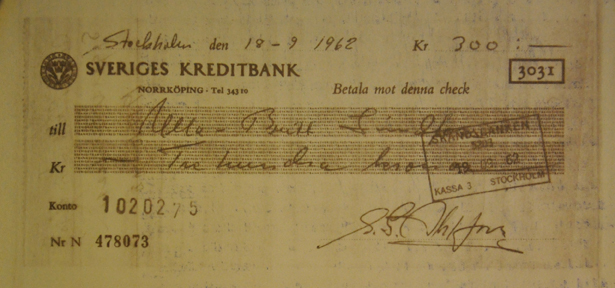 Stockholm den 18-9 1962 Kr 300:—
SVERIGES KREDITBANK
3031
NORRKÖPING · Tel 343 10
Betala mot denna check
till Ulla-Britt
Kr — Tre hundra kronor
SKAND. BANKEN
62
KASSA 3 STOCKHOLM
Konto 1020275
Nr N 478073